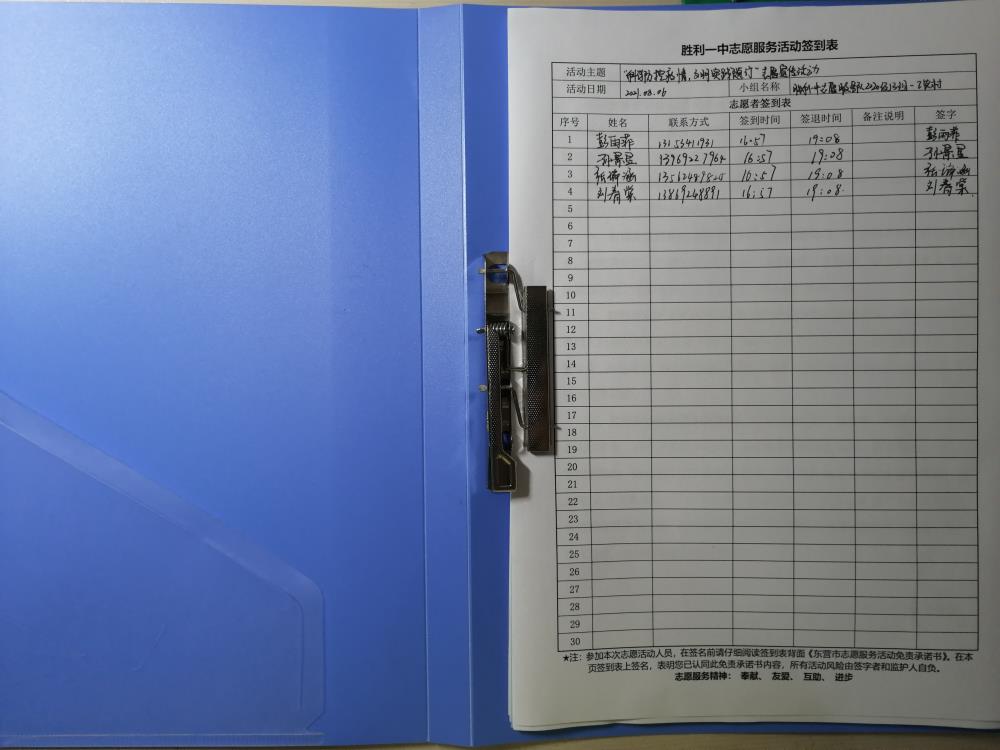 胜利一中志愿服务活动签到表
活动主题 "科学防控疫情,文明实践随行"志愿宣传活动
活动日期 2021.08.06 小组名称 胜利一中志愿服务队2020级13班
志愿者签到表
序号 姓名 联系方式 签到时间 签退时间 备注说明 签字
1 彭雨菲 13153941931 16:57 19:08 彭雨菲
2 孙景昱 16:57 19:08 孙景昱
3 16:57 19:08
4 刘春棠 13869248891 16:57 19:08. 刘春棠
5
6
7
8
9
10
11
12
13
14
15
16
17
18
19
20
21
22
23
24
25
26
27
28
29
30
★注:参加本次志愿活动人员,在签名前请仔细阅读签到表背面《东营市志愿服务活动免责承诺书》。在本
页签到表上签名,表明您已认同此免责承诺书内容,所有活动风险由签字者和监护人自负。
志愿服务精神: 奉献、 友爱、 互助、 进步